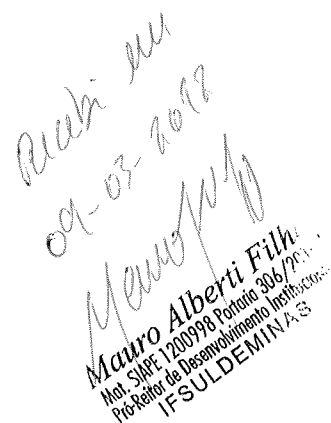 Recebi em
09-03-2012
Mauro Alberti Filh
Mat. SIAPE 1200998 Portaria 306/20
Pró-Reitor de Desenvolvimento Institucion
IFSULDEMINAS